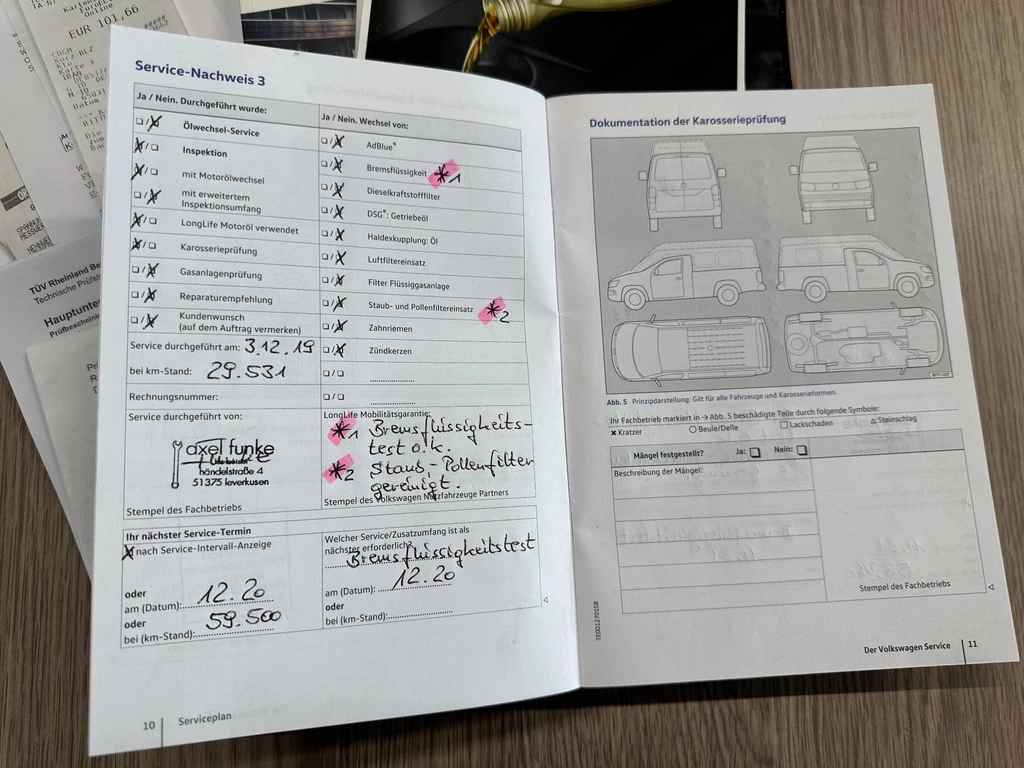 EUR 101,66
Service-Nachweis 3
Ja / Nein. Durchgeführt wurde:
❑/❑ Ölwechsel-Service
❑/❑ Inspektion
❑/❑ mit Motorölwechsel
❑/❑ mit erweitertem
Inspektionsumfang
❑/❑ LongLife Motoröl verwendet
❑/❑ Karosserieprüfung
❑/❑ Gasanlagenprüfung
❑/❑ Reparaturempfehlung
❑/❑ Kundenwunsch
(auf dem Auftrag vermerken)
Service durchgeführt am: 3.12.19
bei km-Stand: 29.531
Rechnungsnummer:
Service durchgeführt von:
axel funke
händelstraße 4
51375 leverkusen
Stempel des Fachbetriebs
Ja / Nein. Wechsel von:
❑/❑ AdBlue®
❑/❑ Bremsflüssigkeit *1
❑/❑ Dieselkraftstofffilter
❑/❑ DSG®: Getriebeöl
❑/❑ Haldexkupplung: Öl
❑/❑ Luftfiltereinsatz
❑/❑ Filter Flüssiggasanlage
❑/❑ Staub- und Pollenfiltereinsatz *2
❑/❑ Zahnriemen
❑/❑ Zündkerzen
❑/❑
❑/❑
LongLife Mobilitätsgarantie:
*1 Bremsflüssigkeits-
test o.k.
*2 Staub-Pollenfilter
gereinigt.
Stempel des Volkswagen Nutzfahrzeuge Partners
Ihr nächster Service-Termin
nach Service-Intervall-Anzeige
oder
am (Datum): 12.20
oder
bei (km-Stand): 59.500
Welcher Service/Zusatzumfang ist als
nächster erforderlich?
Bremsflüssigkeitstest
am (Datum): 12.20
oder
bei (km-Stand):
10 Serviceplan
Dokumentation der Karosserieprüfung
Abb. 5 Prinzipdarstellung: Gilt für alle Fahrzeuge und Karosserieformen.
Ihr Fachbetrieb markiert in → Abb. 5 beschädigte Teile durch folgende Symbole:
× Kratzer ○ Beule/Delle □ Lackschaden △ Steinschlag
Mängel festgestellt? Ja: ❑ Nein: ❑
Beschreibung der Mängel:
Stempel des Fachbetriebs
7E001270158
Der Volkswagen Service 11